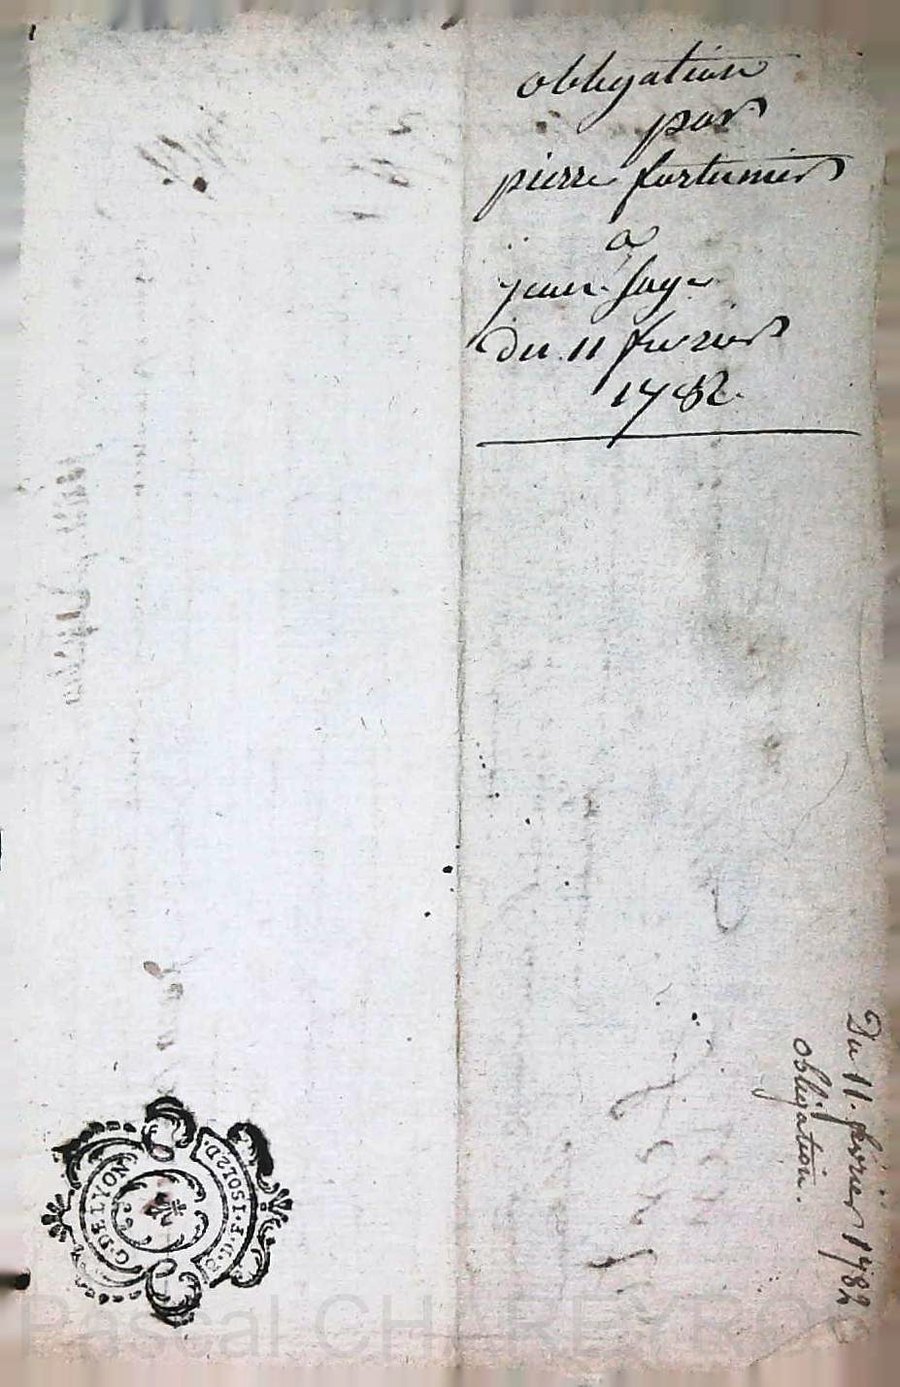 obligation
par
pierre fortunier
a
jean sage
du 11 fevrier
1782.
Du 11. février 1782
obligation.
G. DE LYON
Pascal CHAREYRON